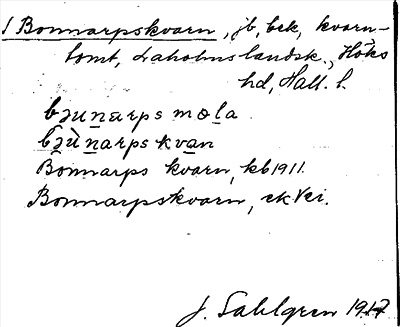 1 Bonnarpskvarn, jb, bek, kvarn-
tomt, Laholms landsk., Höks
hd, Hall. l.
bɔunarps mɵla
bɔùnarps kvan
Bonnarps kvarn, kb 1911.
Bonnarpskvarn, ek Vei.
J. Sahlgren 1917